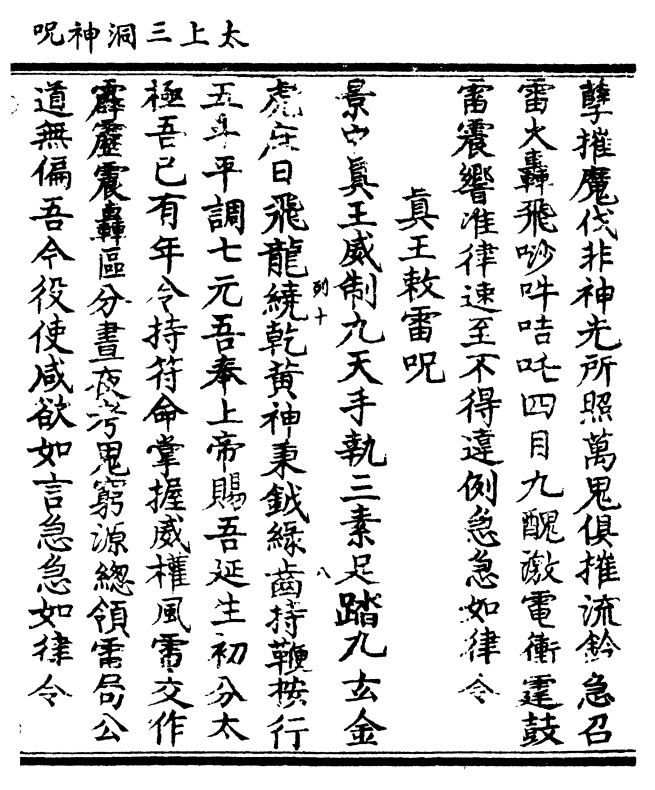 太上三洞神呪
孽摧魔伐非神光所照萬鬼俱摧流鈴急召
雷火轟飛唦吽咭吒四目九醜激電衝霆鼓
雷震響准律速至不得違例急急如律令
真王敕雷呪
景中真王威制九天手執三素足踏九玄金
虎府日飛龍繞乾黃神秉鉞綠齒持鞭按行
列十 八
五斗平調七元吾奉上帝賜吾延生初分太
極吾已有年令持符命掌握威權風雷交作
霹靂震轟區分晝夜考鬼窮源總領雷局公
道無偏吾今役使咸欲如言急急如律令